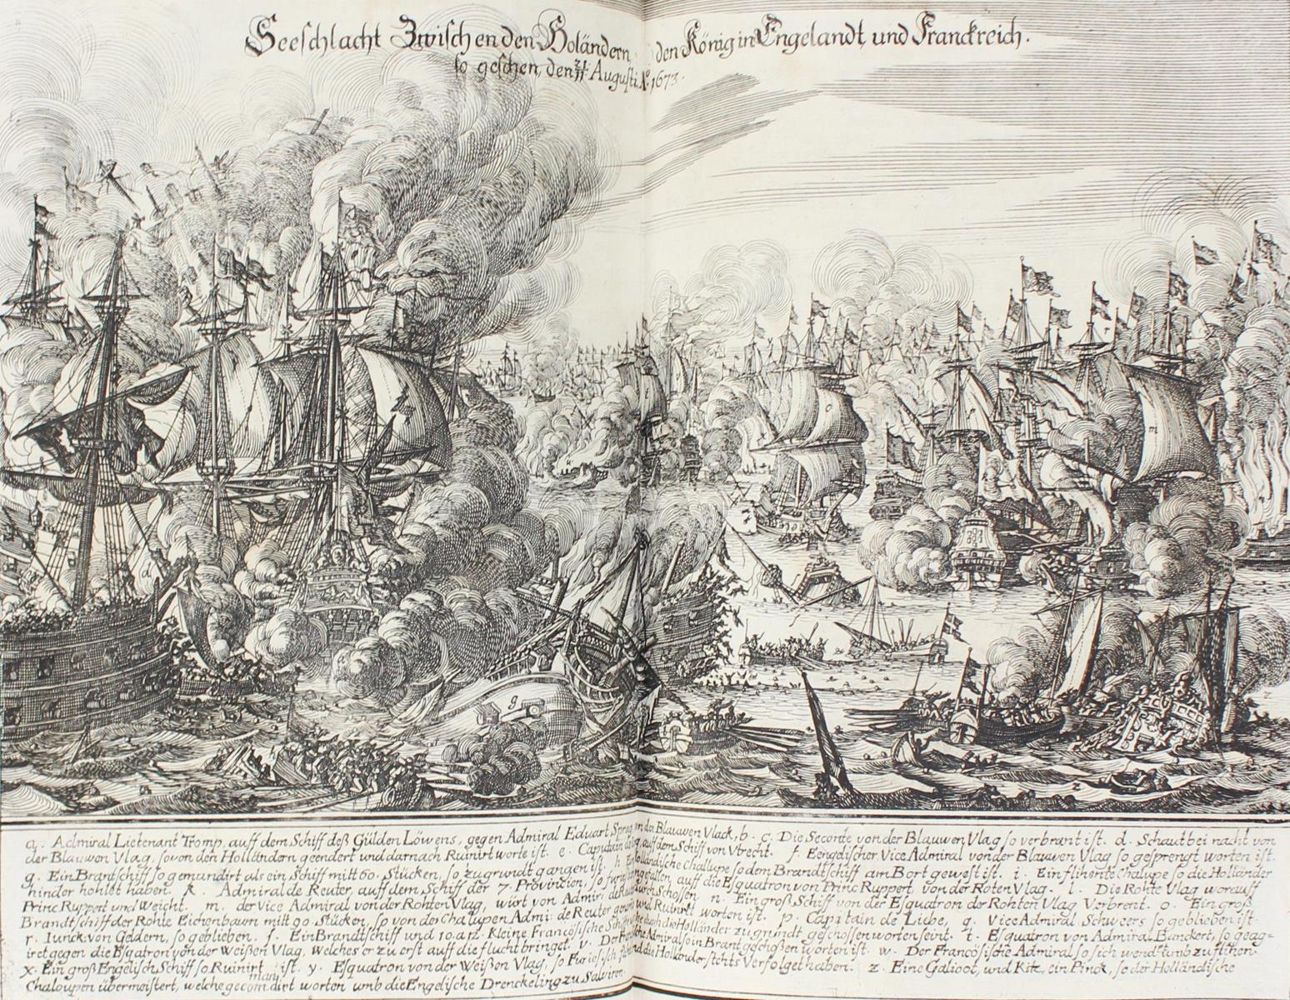 Seeschlacht Zwischen den Holändern den König in Engelandt, und Franckreich.
so geschen, den Augusti. Aº 1673.
a. Admiral Lietenant Tromp, auff dem Schiff deß Gülden Löwens, gegen Admiral Eduart Sprag von der Blauwen Vlack. b. c. Die Seconte von der Blauwen Vlag so verbrant ist. d. Schaut bei nacht von
der Blauwen Vlag, so von den Holländern geendert und darnach Ruinirt worte ist. e. Caputain auff dem Schiff von Vtrecht. f. Eengdischer Vice Admiral von der Blauwen Vlag so gesprengt worten ist.
g. Ein Brantschiff so gemundirt als ein Schiff mitt 60. Stücken, so zu grundt gangen ist. h. Holländische Challupe so dem Brandtschiff am Bort gewest ist. i. Ein flihente Chalupe so die Holländer
hinder hohlet haben. k. Admiral de Reuter, auff dem Schiff der 7. Provintzen, so auff die Esquatron von Princ Ruppert von der Roten Vlag. l. Die Rohte Vlag worauff
Princ Ruppert und Weicht. m. der Vice Admiral von der Rohten Vlag, würt von Admir. durch Schoßen. n. Ein groß Schiff von der Esquatron der Rohten Vlag Verbrent. o. Ein groß
Brandtschiff der Rohte Eichenbaum mitt 90. Stücken, so von da Chalupen Admi: de Reuter und Ruinirt worten ist. p. Capitain de Liebe, q. Vice Admiral Schweers so geblieben ist.
r. Iunck von Geldern, so geblieben. Ein Brandtschiff und 10. a 12. Kleine Französische Schiff die Holländer zu grundt geschossen worten seint. t. Esquatron von Admiral Banckert, so geag-
iret gegen die Esquatron von der Weißen Vlag, Welches er zu erst auff die flucht bringet. v. Admiral so in Brant geschoßen worten ist. w. Der Francösische Admiral so sich wend umb zu flihen.
x. Ein groß Engelisch Schiff so Ruinirt ist. y. Esquatron von der Weißen Vlag, so die Holländer stehts Verfolget haben. z. Eine Galioot, und Kitz, ein Pinck, so der Holländische
Chaloupen übermeistert, welche gecommandirt worten umb die Engelische Drenckeling zu Salviren.